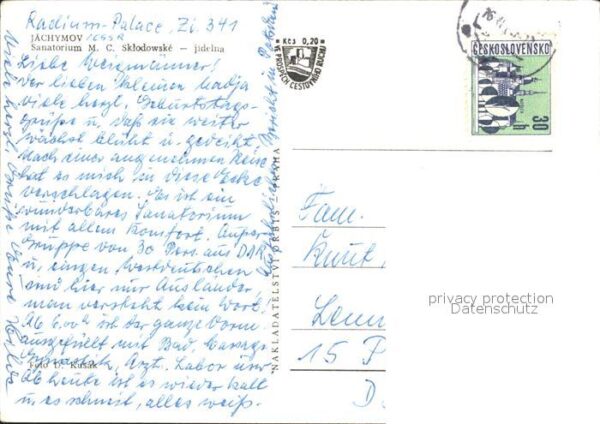 Radium-Palace, Zi. 341
JÁCHYMOV ČSSR
Sanatorium M. C. Skłodowské — jídelna
Liebe
Der lieben kleinen Nadja
viele herzl. Geburtstags-
grüße u. daß sie weiter
wächst blüht u. gedeiht.
Nach einer angenehmen Reise
hat es mich in diese Ecke
verschlagen. Es ist ein
wunderbares Sanatorium
mit allem Komfort. Außer
Gruppe von 30 Pers. aus DDR
u. einigen Westdeutschen
sind hier nur Ausländer,
man versteht kein Wort.
Ab 6.00 h ist der ganze Vorm.
ausgefüllt mit Bad, Massage
Gymnastik, Arzt. Labor usw.
Foto D. Kusák
Ab heute ist es wieder kalt
u. es schneit, alles weiß.
Viele herzl. Grüße
Kčs 0,20
VE PROSPĚCH CESTOVNÍHO RUCHU
ČESKOSLOVENSKO
30 h
NAKLADATELSTVÍ ORBIS PRAHA
Fam.
Knut
15 P
D
privacy protection
Datenschutz